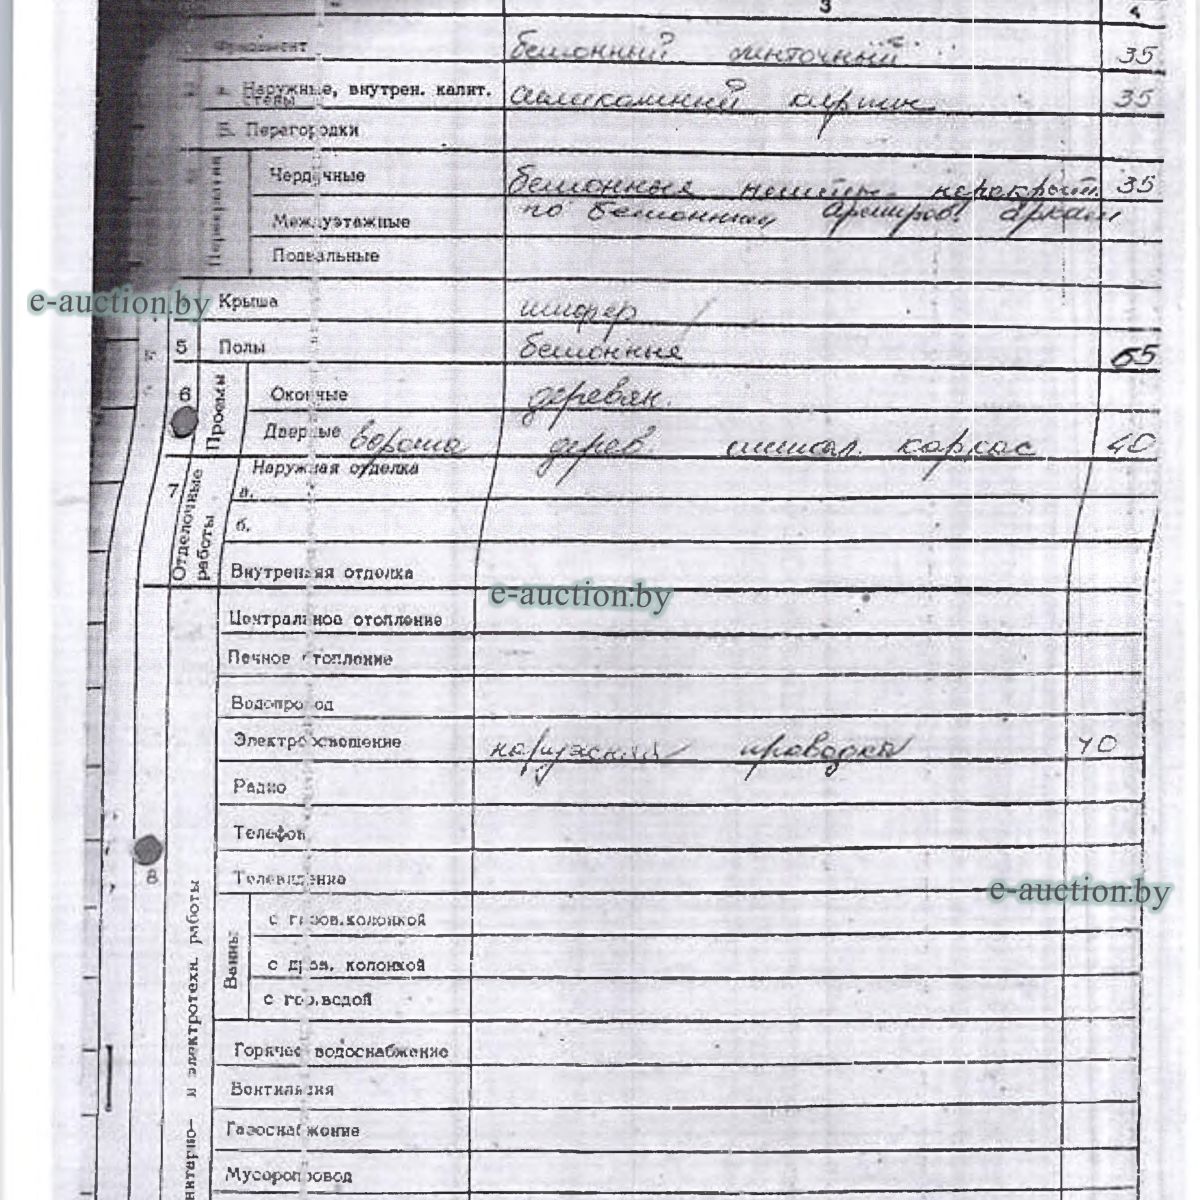 3 4
Фундамент бетонный ленточный 35
а. Наружные, внутрен. капит. стены силикатный кирпич 35
Б. Перегородки
Перекрытия
Чердачные бетонные 35
Междуэтажные по бетонным армиров. аркам
Подвальные
Крыша шифер
5 Полы бетонные 65
6 Проемы
Оконные деревян.
Дверные ворота дерев. каркас 40
7 Отделочные работы
Наружная отделка
а.
б.
Внутренняя отделка
Центральное отопление
Печное отопление
Водопровод
Электроосвещение проводка 40
Радио
Телефон
8 Телевидение
Ванны:
с газов.колонкой
с дров. колонкой
с гор.водой
Горячее водоснабжение
Вентиляция
Газоснабжение
Мусоропровод
нитарно- и электротехн. работы
e-auction.by
e-auction.by
e-auction.by